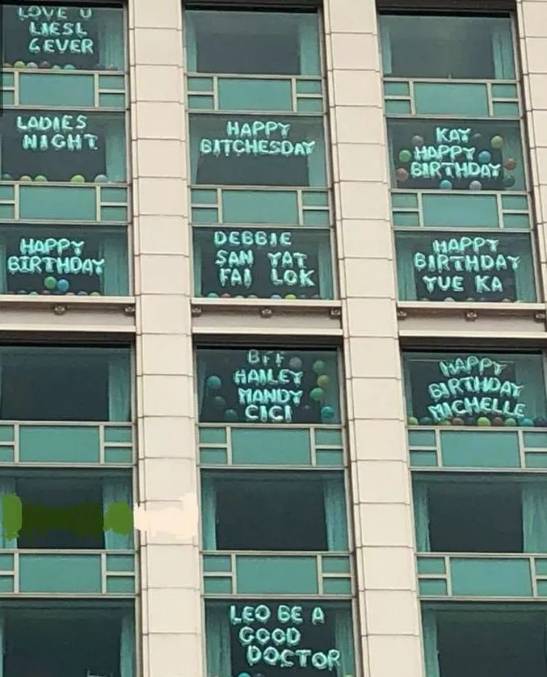 LOVE U
LIESL
4EVER
LADIES
NIGHT
HAPPY
BITCHESDAY
KAY
HAPPY
BIRTHDAY
HAPPY
BIRTHDAY
DEBBIE
SAN YAT
FAI LOK
HAPPY
BIRTHDAY
YUE KA
BFF
HAILEY
MANDY
CICI
HAPPY
BIRTHDAY
MICHELLE
LEO BE A
GOOD
DOCTOR